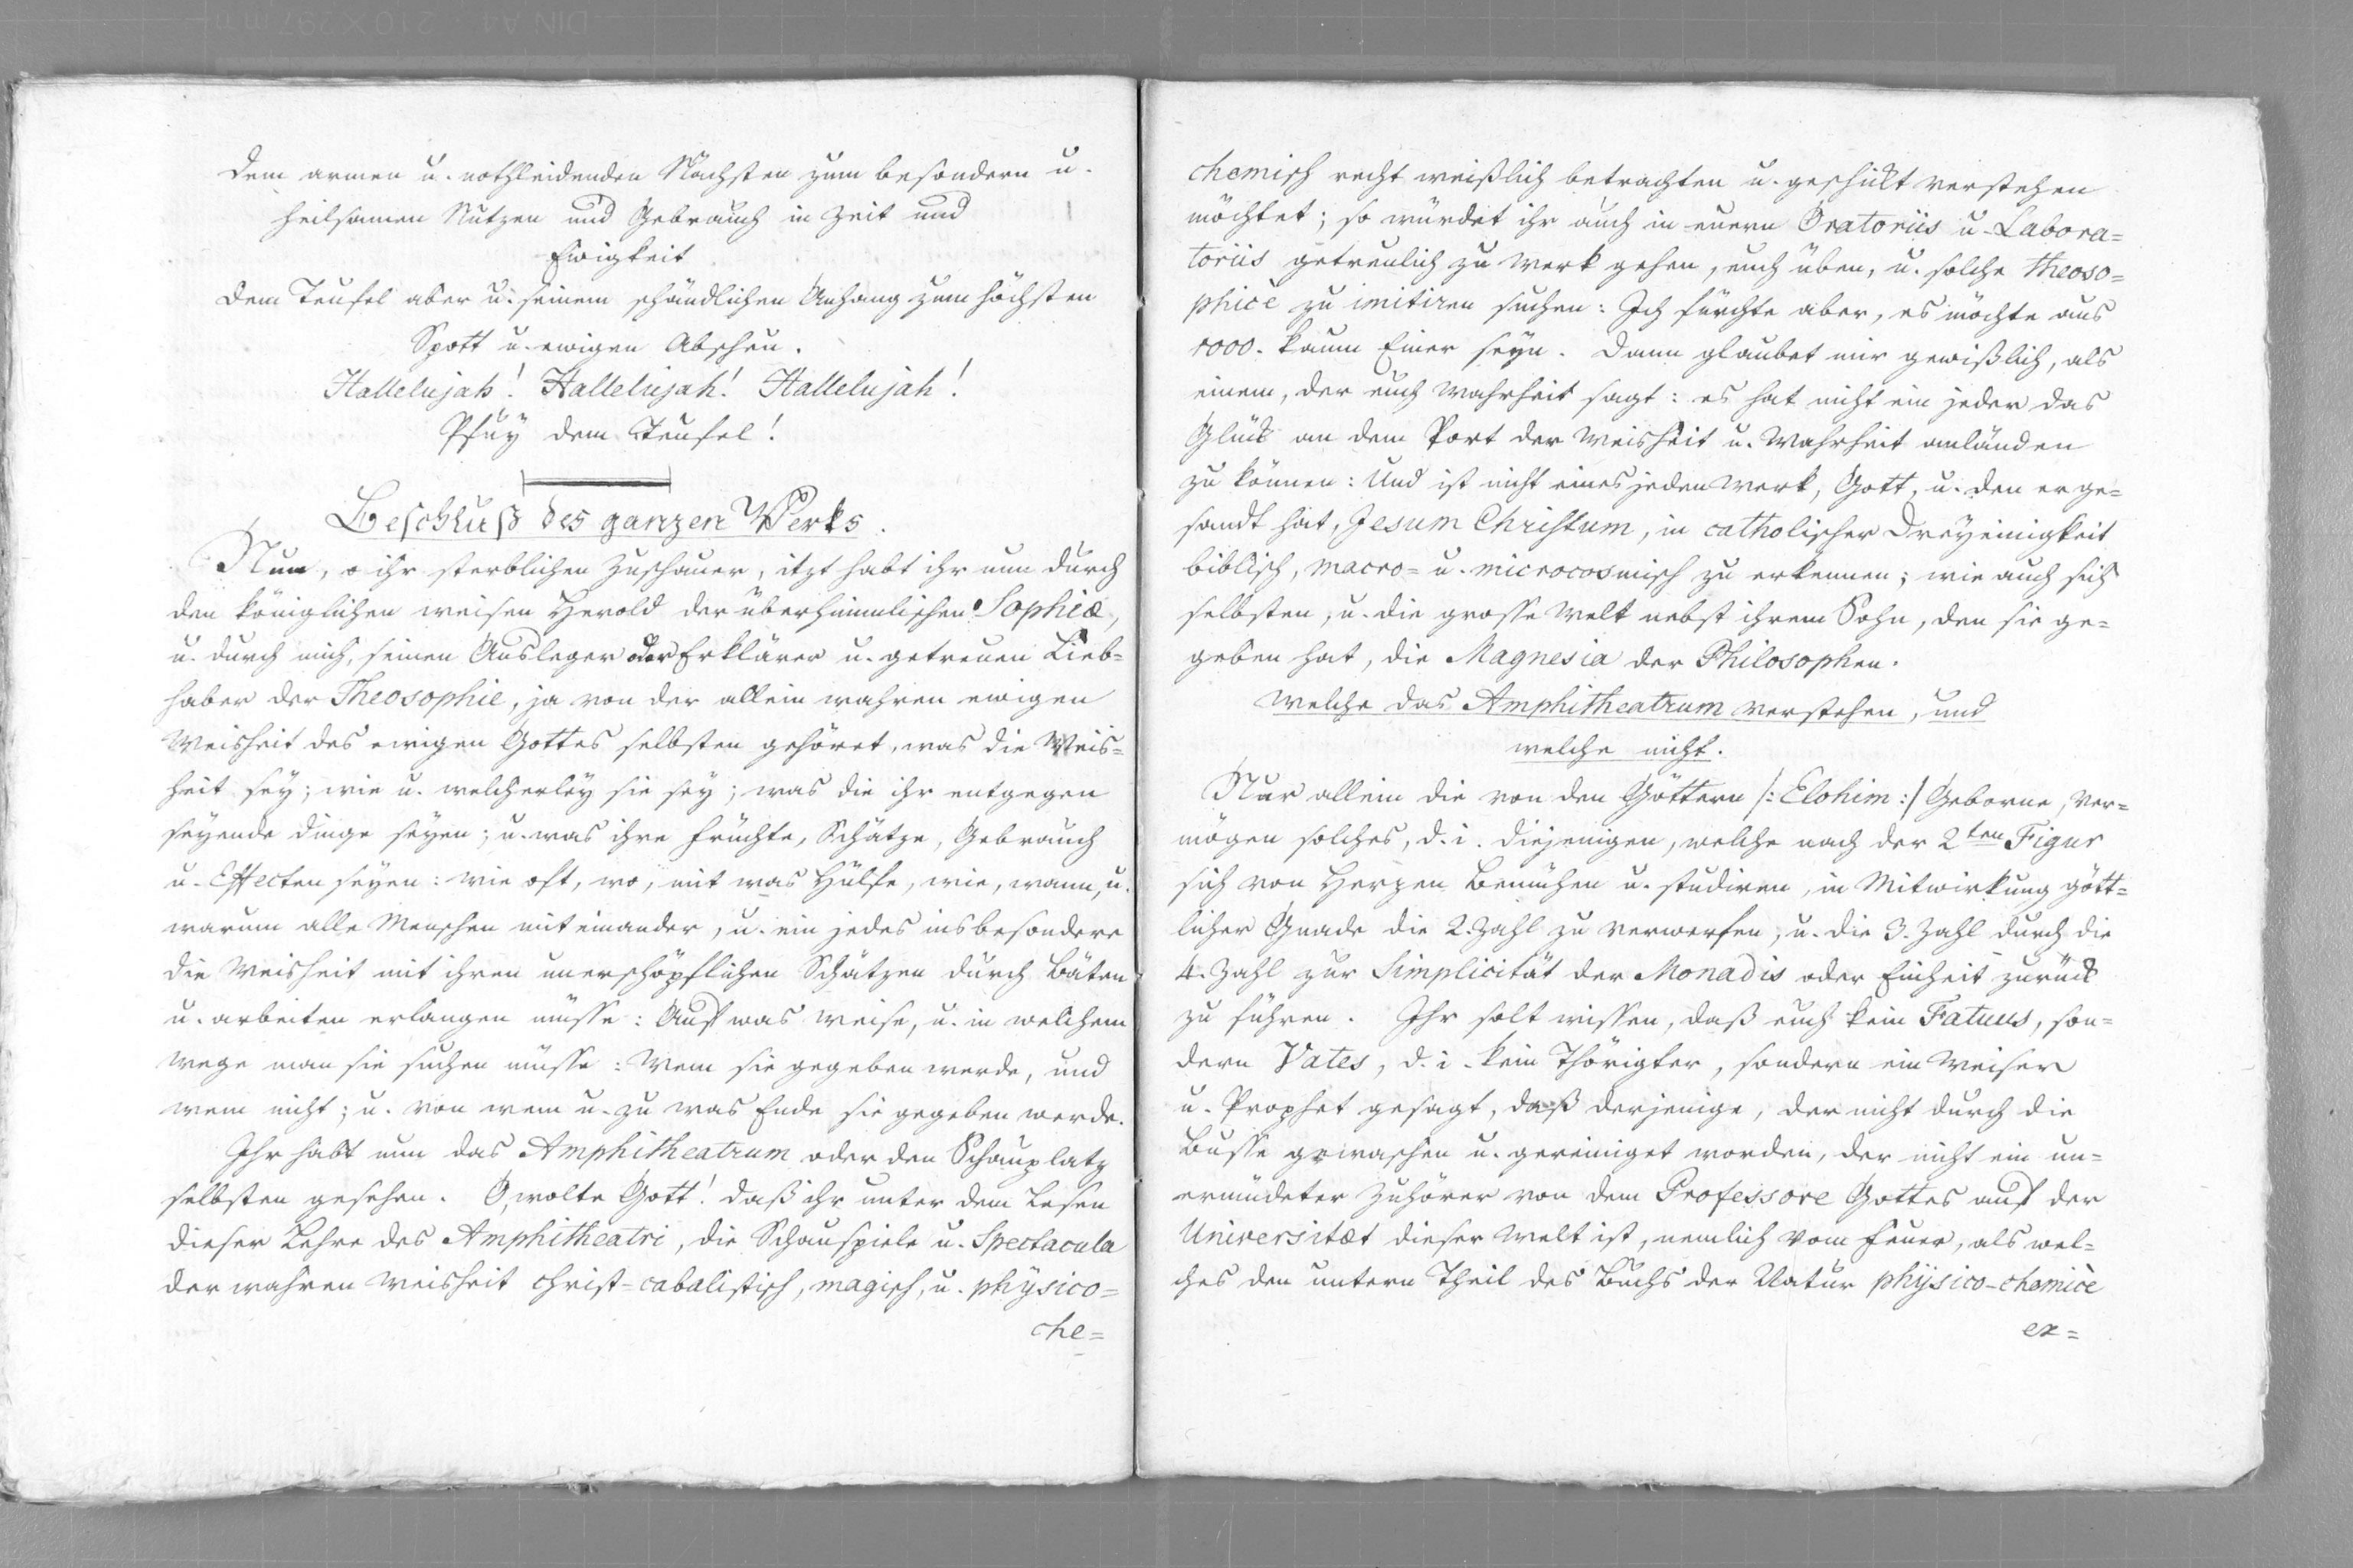 dem armen u. nothleidenden Nächsten zum besondern u.
heilsamen Nutzen und Gebrauch in Zeit und
Ewigkeit
dem Teufel aber u. seinem schändlichen Anhang zum höchsten
Spott u. ewigen Abscheu.
Hallelujah! Hallelujah! Hallelujah!
Pfuy dem Teufel!
Beschluß des ganzen Werks.
Nun, o ihr sterblichen Zuschauer, itzt habt ihr nun durch
den königlichen weisen Herold der überhimmlischen Sophiæ,
u. durch mich, seinen Ausleger oder Erklärer u. getreuen Lieb=
haber der Theosophie, ja von der allein wahren ewigen
Weisheit des ewigen Gottes selbsten gehöret, was die Weis=
heit sey; wie u. welcherley sie sey; was die ihr entgegen
seyende dinge seyen; u. was ihre Früchte, Schätze, Gebrauch
u. Effecten seyen: wie oft, wo, mit was Hülfe, wie, wann, u.
warum alle Menschen mit einander, u. ein jedes insbesondere
die Weisheit mit ihren unerschöpflichen Schätzen durch Bäten
u. arbeiten erlangen müsse: Auf was Weise, u. in welchem
Wege man sie suchen müsse: Wem sie gegeben werde, und
wem nicht; u. von wem u. zu was Ende sie gegeben werde.
Ihr habt nun das Amphitheatrum oder den Schauplatz
selbsten gesehen. O, wolte Gott! daß ihr unter dem Lesen
dieser Lehre des Amphitheatri, die Schauspiele u. Spectacula
der wahren Weisheit christ=cabalistisch, magisch, u. physico=
che=
chemisch recht weißlich betrachten u. geschickt verstehen
möchtet; so würdet ihr auch in euern Oratoriis u. Labora=
toriis getreulich zu Werk gehen, euch üben, u. solche theoso=
phicè zu imitiren suchen: Ich fürchte aber, es möchte aus
1000. kaum Einer seyn. Dann glaubet mir gewißlich, als
einem, der euch Wahrheit sagt: es hat nicht ein jeder das
Glück an dem Port der Weisheit u. Wahrheit anländen
zu können: Und ist nicht eines jeden Werk, Gott, u. den er ge=
sandt hat, Jesum Christum, in catholischer Dreyeinigkeit
biblisch, macro= u. microcosmisch zu erkennen; wie auch sich
selbsten, u. die grosse Welt nebst ihrem Sohn, den sie ge=
geben hat, die Magnesia der Philosophen.
Welche das Amphitheatrum verstehen, und
welche nicht.
Nur allein die von den Göttern /: Elohim :/ Geborne, ver=
mögen solches, d. i. diejenigen, welche nach der 2ten Figur
sich von Herzen bemühen u. studiren, in Mitwirkung gött=
licher Gnade die 2. Zahl zu verwerfen, u. die 3. Zahl durch die
4. Zahl zur Simplicität der Monadis oder Einheit zurück
zu führen. Ihr solt wissen, daß euch kein Fatuus, son=
dern Vates, d. i. kein Thörigter, sondern ein Weiser
u. Prophet gesagt, daß derjenige, der nicht durch die
Busse gewaschen u. gereiniget worden, der nicht ein un=
ermüdeter Zuhörer von dem Professore Gottes auf der
Universitæt dieser Welt ist, nemlich vom Feuer, als wel=
ches den untern Theil des Buchs der Natur physico-chemicè
ex=